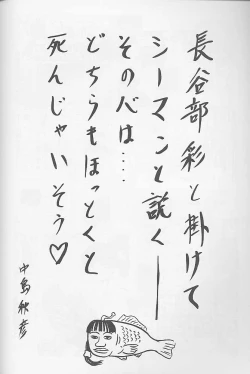 長谷部彩と掛けて
シーマンと説く――
その心は‥‥
どちらもほっとくと
死んじゃいそう♡
中島秋彦